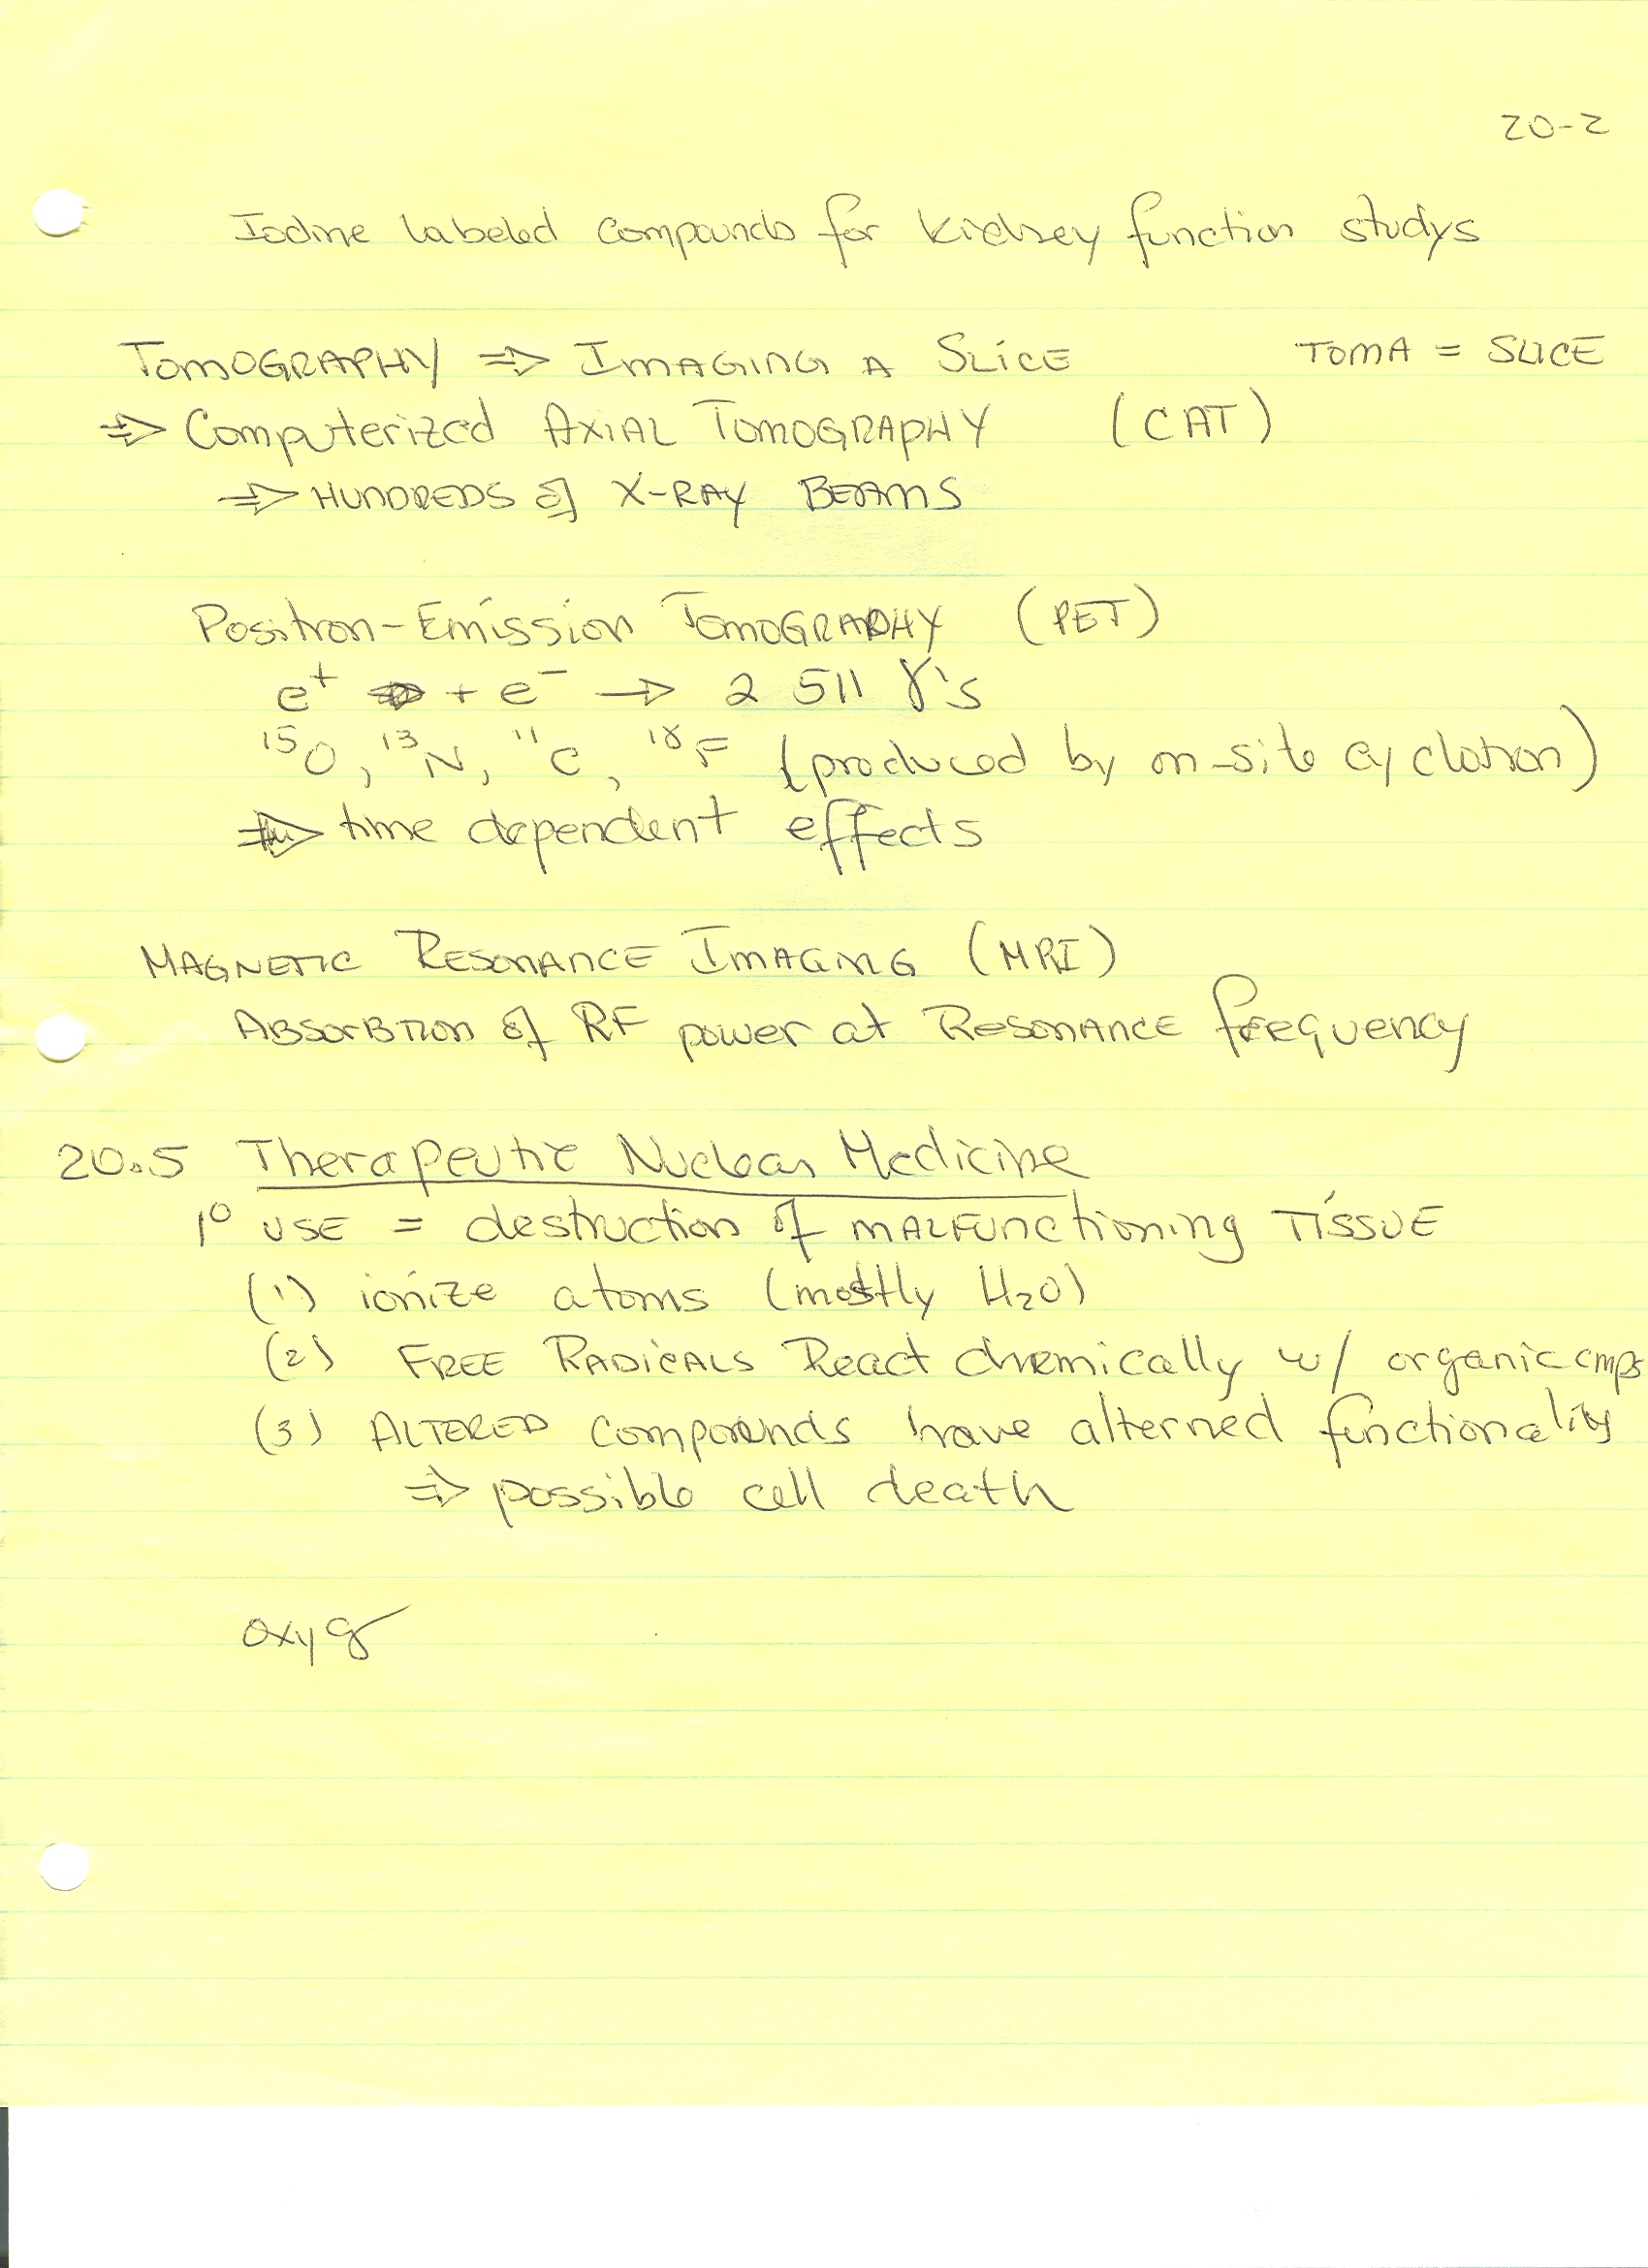 20-2
Iodine labeled compounds for kidney function studys
TOMOGRAPHY ⇒ IMAGING A SLICE TOMA = SLICE
⇒ Computerized AXIAL TOMOGRAPHY (CAT)
⇒ HUNDREDS of X-RAY BEAMS
Positron-Emission TOMOGRAPHY (PET)
e⁺ + e⁻ → 2 511 γ's
¹⁵O, ¹³N, ¹¹C, ¹⁸F (produced by on-site cyclotron)
⇒ time dependent effects
MAGNETIC RESONANCE IMAGING (MRI)
ABSORBTION of RF power at RESONANCE frequency
20.5 Therapeutic Nuclear Medicine
1° USE = destruction of MALFUNCTIONING TISSUE
(1) ionize atoms (mostly H₂O)
(2) FREE RADICALS React chemically w/ organic cmps
(3) ALTERED compounds have alterned functionality
⇒ possible cell death
oxyg